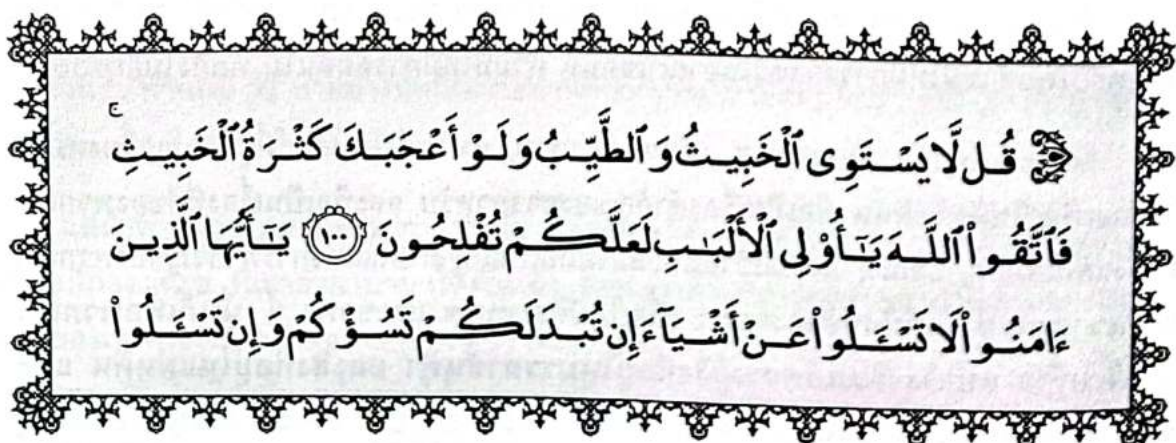 ۞ قُل لَّا يَسْتَوِى ٱلْخَبِيثُ وَٱلطَّيِّبُ وَلَوْ أَعْجَبَكَ كَثْرَةُ ٱلْخَبِيثِ ۚ
فَٱتَّقُوا۟ ٱللَّهَ يَـٰٓأُو۟لِى ٱلْأَلْبَـٰبِ لَعَلَّكُمْ تُفْلِحُونَ ١٠٠ يَـٰٓأَيُّهَا ٱلَّذِينَ
ءَامَنُوا۟ لَا تَسْـَٔلُوا۟ عَنْ أَشْيَآءَ إِن تُبْدَ لَكُمْ تَسُؤْكُمْ وَإِن تَسْـَٔلُوا۟